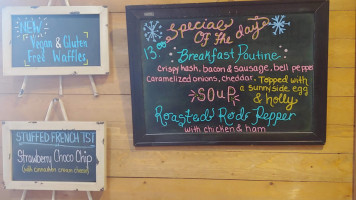 NEW
Vegan & Gluten
Free Waffles
STUFFED FRENCH TST
Strawberry Choco Chip
(with cinnamon cream cheese)
Specials
Of The day
13.00
Breakfast Poutine
Crispy hash, bacon & sausage, bell pepper
caramelized onions, cheddar. Topped with
a sunnyside egg
& holly
SOUP
Roasted Red Pepper
with chicken & ham